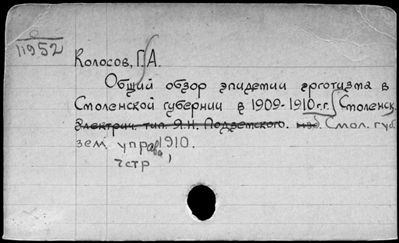 11952
Колосов, Г.А.
Общий обзор эпидемии эрготизма в
Смоленской губернии в 1909-1910 г.г. Смоленск,
Электрич. тип. Я.Н. Подземского. изд. Смол. губ.
зем. управа 1910.
7 стр